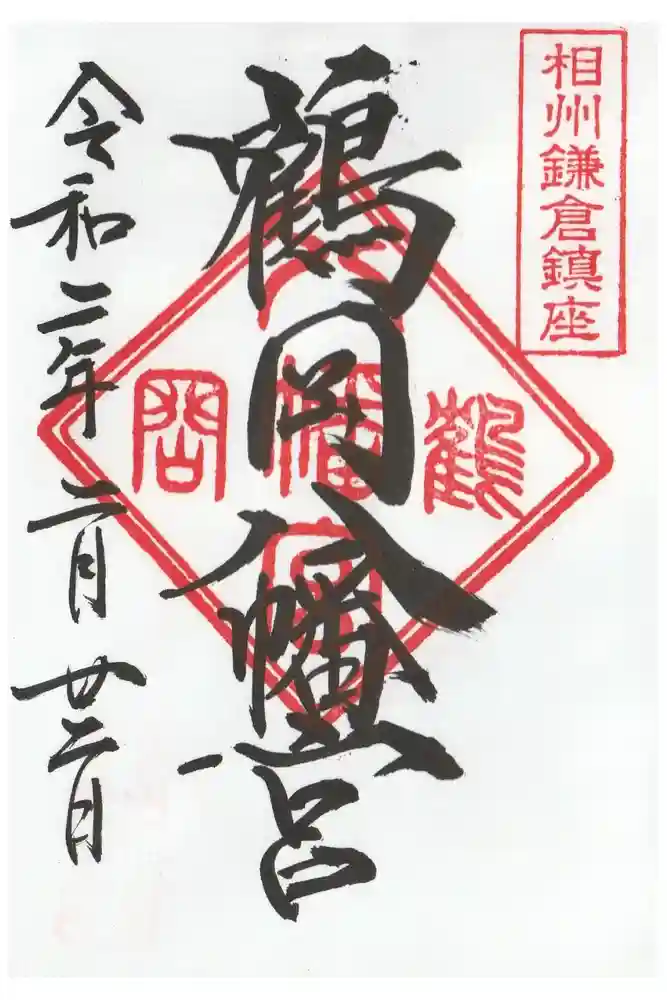 相州鎌倉鎮座
鶴岡八幡宮
鶴岡八幡宮
令和二年二月廿二日